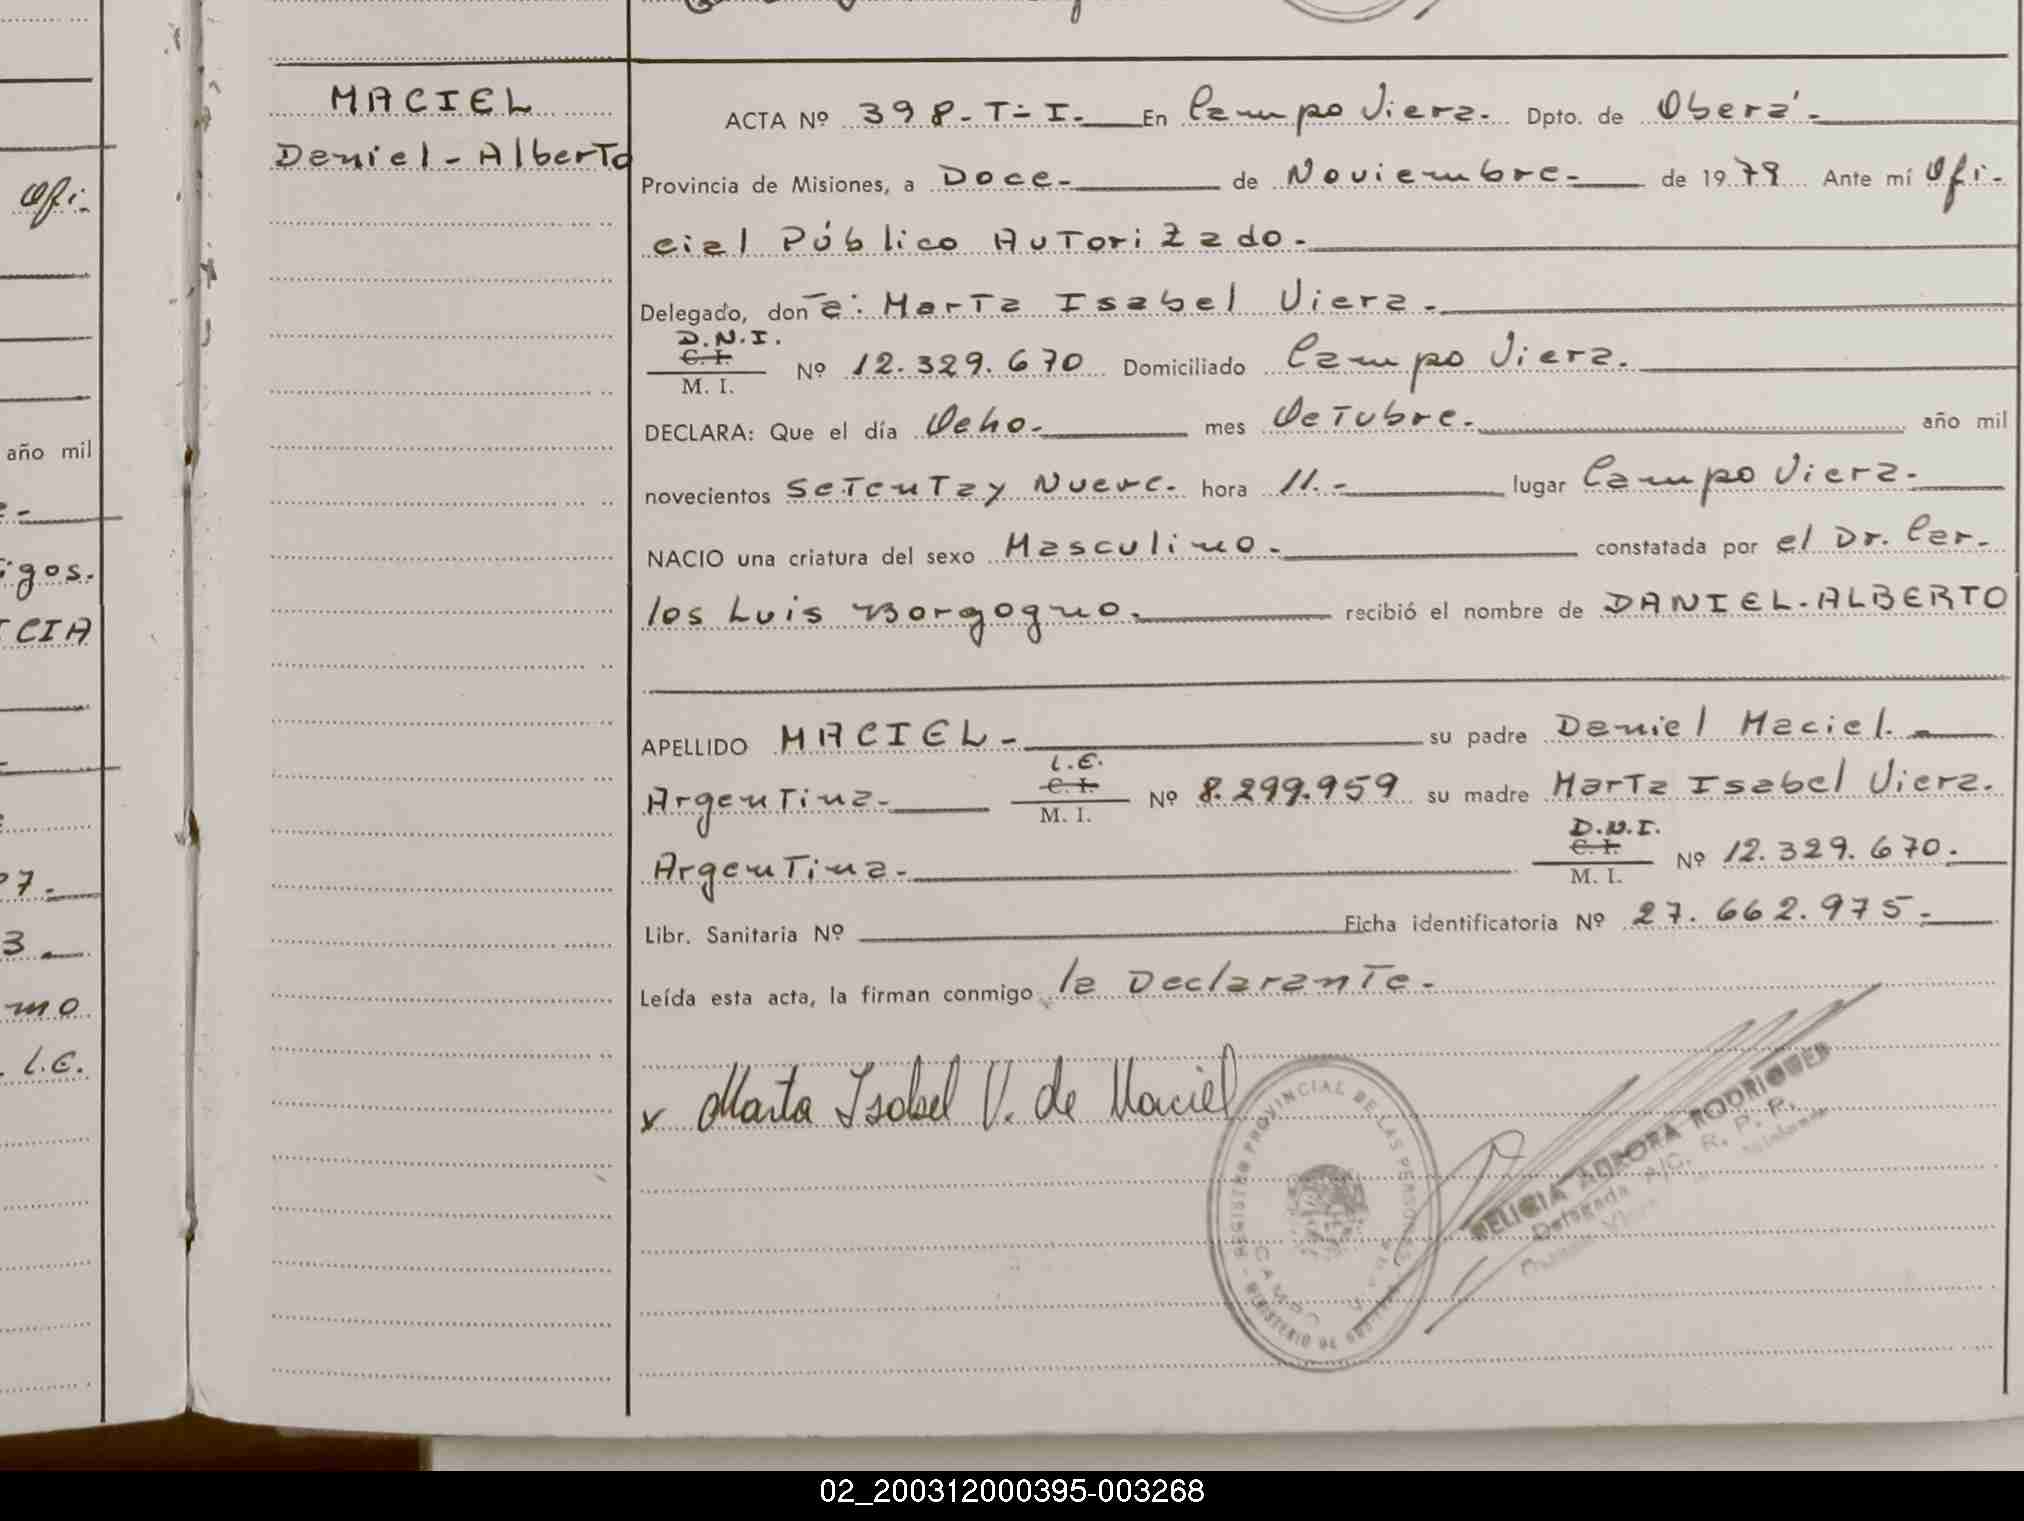 MACIEL
Daniel-Alberto
ACTA Nº 398-T-I.- En Campo Viera. Dpto. de Oberá.-
Provincia de Misiones, a Doce.- de Noviembre.- de 1979 Ante mí Ofi-
cial Público Autorizado.-
Delegado, don a: Marta Isabel Viera.-
D.N.I.
C. I.
M. I. Nº 12.329.670 Domiciliado Campo Viera.
DECLARA: Que el día Ocho.- mes Octubre.- año mil
novecientos Setenta y Nueve. hora 11.- lugar Campo Viera.-
NACIO una criatura del sexo Masculino.- constatada por el Dr. Car-
los Luis Borgogno.- recibió el nombre de DANIEL-ALBERTO
APELLIDO MACIEL- su padre Daniel Maciel.-
L.E.
C. I.
Argentina.- M. I. Nº 8.299.959 su madre Marta Isabel Viera.
D.N.I.
C. I.
Argentina.- M. I. Nº 12.329.670.-
Libr. Sanitaria Nº Ficha identificatoria Nº 27.662.975.-
Leída esta acta, la firman conmigo la Declarante.-
x Marta Isabel V. de Maciel
REGISTRO PROVINCIAL DE LAS PERSONAS
MINISTERIO DE
CAMPO
AURORA RODRIGUEZ
Delegada A/C. R. P. P.
Ofi.
año mil
igos.
ICIA
7.-
3.-
mo
L.E.
02_200312000395-003268